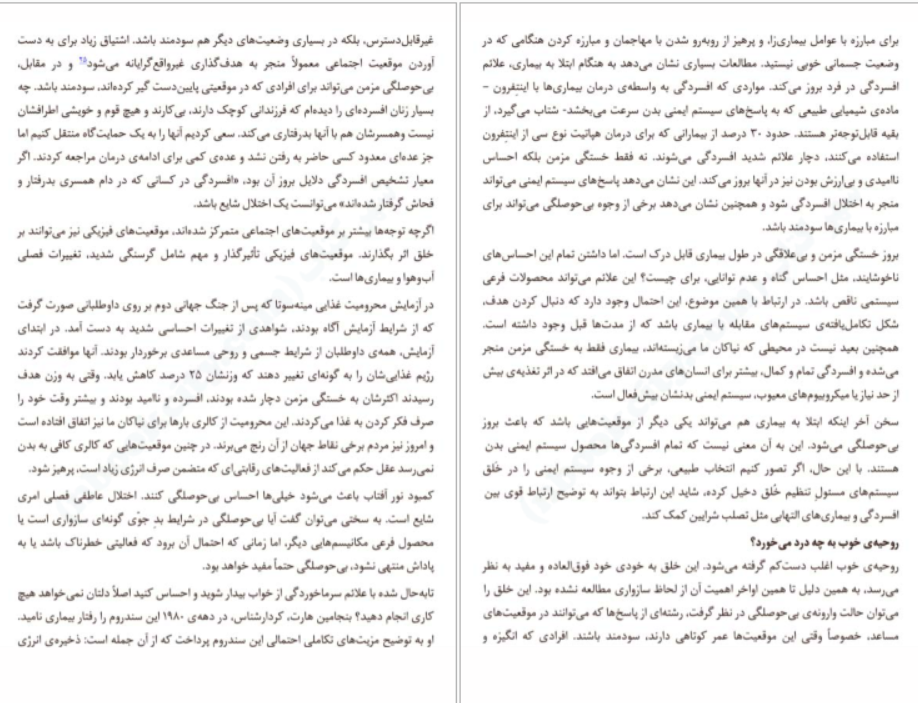 غیرقابل‌دسترس، بلکه در بسیاری وضعیت‌های دیگر هم سودمند باشد. اشتیاق زیاد برای به دست
آوردن موقعیت اجتماعی معمولاً منجر به هدف‌گذاری غیرواقع‌گرایانه می‌شود و در مقابل،
بی‌حوصلگی مزمن می‌تواند برای افرادی که در موقعیتی پایین‌دست گیر کرده‌اند، سودمند باشد. چه
بسیار زنان افسرده‌ای را دیده‌ام که فرزندانی کوچک دارند، بی‌کارند و هیچ قوم و خویشی اطرافشان
نیست وهمسرشان هم با آنها بدرفتاری می‌کند. سعی کردیم آنها را به یک حمایت‌گاه منتقل کنیم اما
جز عده‌ای معدود کسی حاضر به رفتن نشد و عده‌ی کمی برای ادامه‌ی درمان مراجعه کردند. اگر
معیار تشخیص افسردگی دلایل بروز آن بود، «افسردگی در کسانی که در دام همسری بدرفتار و
فحاش گرفتار شده‌اند» می‌توانست یک اختلال شایع باشد.
اگرچه توجه‌ها بیشتر بر موقعیت‌های اجتماعی متمرکز شده‌اند، موقعیت‌های فیزیکی نیز می‌توانند بر
خلق اثر بگذارند. موقعیت‌های فیزیکی تأثیرگذار و مهم شامل گرسنگی شدید، تغییرات فصلی
آب‌وهوا و بیماری‌ها است.
در آزمایش محرومیت غذایی مینه‌سوتا که پس از جنگ جهانی دوم بر روی داوطلبانی صورت گرفت
که از شرایط آزمایش آگاه بودند، شواهدی از تغییرات احساسی شدید به دست آمد. در ابتدای
آزمایش، همه‌ی داوطلبان از شرایط جسمی و روحی مساعدی برخوردار بودند. آنها موافقت کردند
رژیم غذایی‌شان را به گونه‌ای تغییر دهند که وزنشان ۲۵ درصد کاهش یابد. وقتی به وزن هدف
رسیدند اکثرشان به خستگی مزمن دچار شده بودند، افسرده و ناامید بودند و بیشتر وقت خود را
صرف فکر کردن به غذا می‌کردند. این محرومیت از کالری بارها برای نیاکان ما نیز اتفاق افتاده است
و امروز نیز مردم برخی نقاط جهان از آن رنج می‌برند. در چنین موقعیت‌هایی که کالری کافی به بدن
نمی‌رسد عقل حکم می‌کند از فعالیت‌های رقابتی‌ای که متضمن صرف انرژی زیاد است، پرهیز شود.
کمبود نور آفتاب باعث می‌شود خیلی‌ها احساس بی‌حوصلگی کنند. اختلال عاطفی فصلی امری
شایع است. به سختی می‌توان گفت آیا بی‌حوصلگی در شرایط بد جوّی گونه‌ای سازواری است یا
محصول فرعی مکانیسم‌هایی دیگر، اما زمانی که احتمال آن برود که فعالیتی خطرناک باشد یا به
پاداش منتهی نشود، بی‌حوصلگی حتماً مفید خواهد بود.
تابه‌حال شده با علائم سرماخوردگی از خواب بیدار شوید و احساس کنید اصلاً دلتان نمی‌خواهد هیچ
کاری انجام دهید؟ بنجامین هارت، کردارشناس، در دهه‌ی ۱۹۸۰ این سندروم را رفتار بیماری نامید.
او به توضیح مزیت‌های تکاملی احتمالی این سندروم پرداخت که از آن جمله است: ذخیره‌ی انرژی
برای مبارزه با عوامل بیماری‌زا، و پرهیز از روبه‌رو شدن با مهاجمان و مبارزه کردن هنگامی که در
وضعیت جسمانی خوبی نیستید. مطالعات بسیاری نشان می‌دهد به هنگام ابتلا به بیماری، علائم
افسردگی در فرد بروز می‌کند. مواردی که افسردگی به واسطه‌ی درمان بیماری‌ها با اینترفرون -
ماده‌ی شیمیایی طبیعی که به پاسخ‌های سیستم ایمنی بدن سرعت می‌بخشد- شتاب می‌گیرد، از
بقیه قابل‌توجه‌تر هستند. حدود ۳۰ درصد از بیمارانی که برای درمان هپاتیت نوع سی از اینترفرون
استفاده می‌کنند، دچار علائم شدید افسردگی می‌شوند. نه فقط خستگی مزمن بلکه احساس
ناامیدی و بی‌ارزش بودن نیز در آنها بروز می‌کند. این نشان می‌دهد پاسخ‌های سیستم ایمنی می‌تواند
منجر به اختلال افسردگی شود و همچنین نشان می‌دهد برخی از وجوه بی‌حوصلگی می‌تواند برای
مبارزه با بیماری‌ها سودمند باشد.
بروز خستگی مزمن و بی‌علاقگی در طول بیماری قابل درک است. اما داشتن تمام این احساس‌های
ناخوشایند، مثل احساس گناه و عدم توانایی، برای چیست؟ این علائم می‌تواند محصولات فرعی
سیستمی ناقص باشد. در ارتباط با همین موضوع، این احتمال وجود دارد که دنبال کردن هدف،
شکل تکامل‌یافته‌ی سیستم‌های مقابله با بیماری باشد که از مدت‌ها قبل وجود داشته است.
همچنین بعید نیست در محیطی که نیاکان ما می‌زیسته‌اند، بیماری فقط به خستگی مزمن منجر
می‌شده و افسردگی تمام و کمال، بیشتر برای انسان‌های مدرن اتفاق می‌افتد که در اثر تغذیه‌ی بیش
از حد نیاز یا میکروبیوم‌های معیوب، سیستم ایمنی بدنشان بیش‌فعال است.
سخن آخر اینکه ابتلا به بیماری هم می‌تواند یکی دیگر از موقعیت‌هایی باشد که باعث بروز
بی‌حوصلگی می‌شود. این به آن معنی نیست که تمام افسردگی‌ها محصول سیستم ایمنی بدن
هستند. با این حال، اگر تصور کنیم انتخاب طبیعی، برخی از وجوه سیستم ایمنی را در خَلق
سیستم‌های مسئولِ تنظیم خُلق دخیل کرده، شاید این ارتباط بتواند به توضیح ارتباط قوی بین
افسردگی و بیماری‌های التهابی مثل تصلب شرایین کمک کند.
روحیه‌ی خوب به چه درد می‌خورد؟
روحیه‌ی خوب اغلب دست‌کم گرفته می‌شود. این خلق به خودی خود فوق‌العاده و مفید به نظر
می‌رسد، به همین دلیل تا همین اواخر اهمیت آن از لحاظ سازواری مطالعه نشده بود. این خلق را
می‌توان حالت وارونه‌ی بی‌حوصلگی در نظر گرفت، رشته‌ای از پاسخ‌ها که می‌توانند در موقعیت‌های
مساعد، خصوصاً وقتی این موقعیت‌ها عمر کوتاهی دارند، سودمند باشند. افرادی که انگیزه و